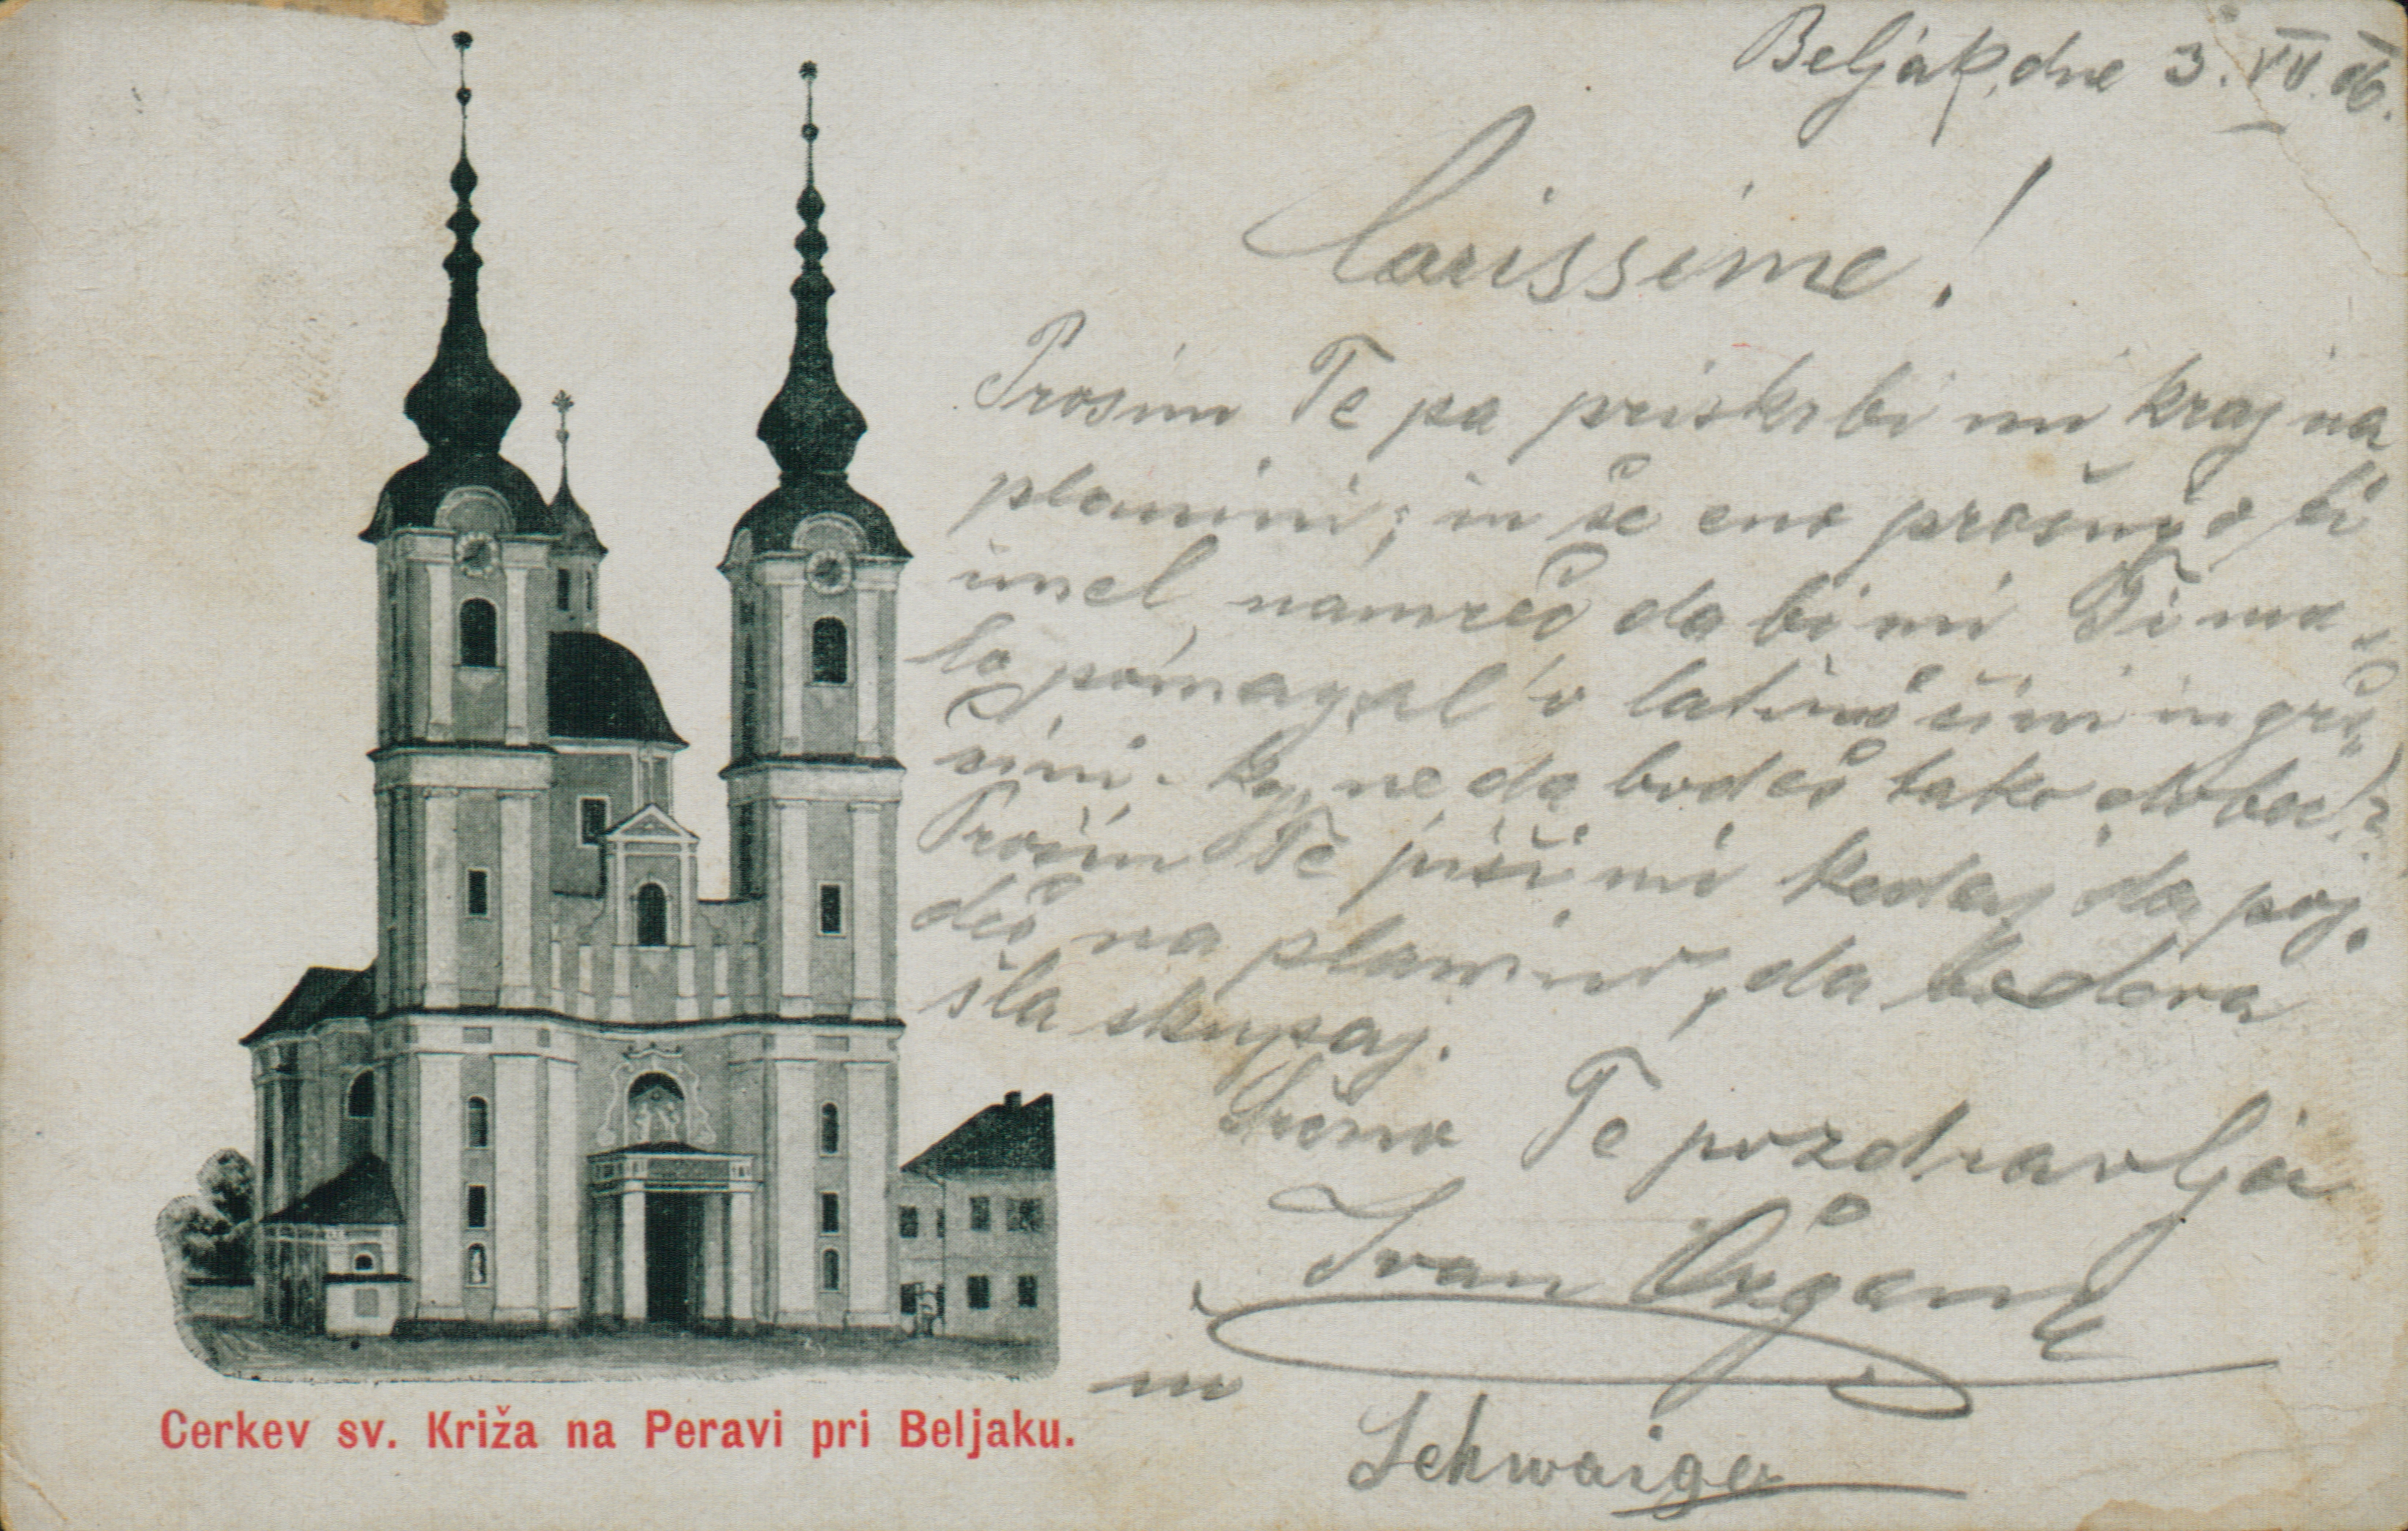 Beljak, dne 3. VII. 06.
Carissime!
Prosim Te pa priskrbi mi kraj na
planini; in še eno prošnjo bi
imel, namreč da bi mi Ti ma-
lo pomagal v latinščini in grš-
čini. Kaj ne da bodeš tako dober?
Prosim Te piši mi kedaj da poj-
deš na planino, da bodeva
šla skupaj.
Srčno Te pozdravlja
Ivan
in
Schwaiger
Cerkev sv. Križa na Peravi pri Beljaku.